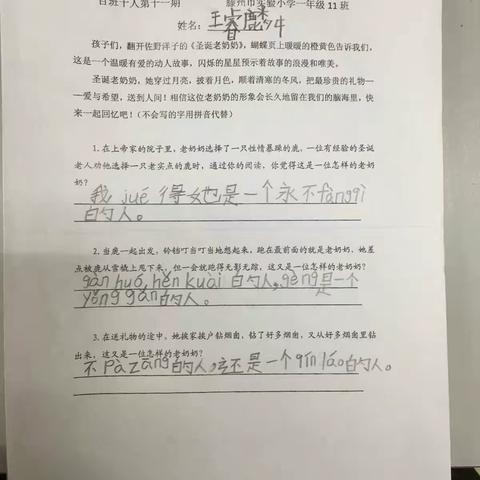 百班千人第十一期 滕州市实验小学一年级 11 班
姓名:王睿麟
孩子们,翻开佐野洋子的《圣诞老奶奶》,蝴蝶页上暖暖的橙黄色告诉我们,
这是一个温暖有爱的动人故事,闪烁的星星预示着故事的浪漫和唯美。
圣诞老奶奶,她穿过月亮,披着月色,顺着清寒的冬风,把最珍贵的礼物—
—爱与希望,送到人间!相信这位老奶奶的形象会长久地留在我们的脑海里,快
来一起回忆吧!(不会写的字用拼音代替)
1.在上帝家的院子里,老奶奶选择了一只性情暴躁的鹿,一位有经验的圣诞
老人劝他选择一只老实点的鹿时,通过你的阅读,你觉得这是一位怎样的老奶
奶?
我 jué 得她也是一个永不fàngqì
的人。
2.当鹿一起出发,铃铛叮当叮当地想起来,跑在最前面的就是老奶奶,她差
点被鹿从雪橇上甩下来,但一会就跑得无影无踪,这又是一位怎样的老奶奶?
gàn huó,hěn kuài 的人,gèng是一个
yǒng gǎn的人。
3.在送礼物的途中,她挨家挨户钻烟囱,钻了好多烟囱,又从好多烟囱里钻
出来,这又是一位怎样的老奶奶?
不 pà zāng的人,还是一个qín láo的人。